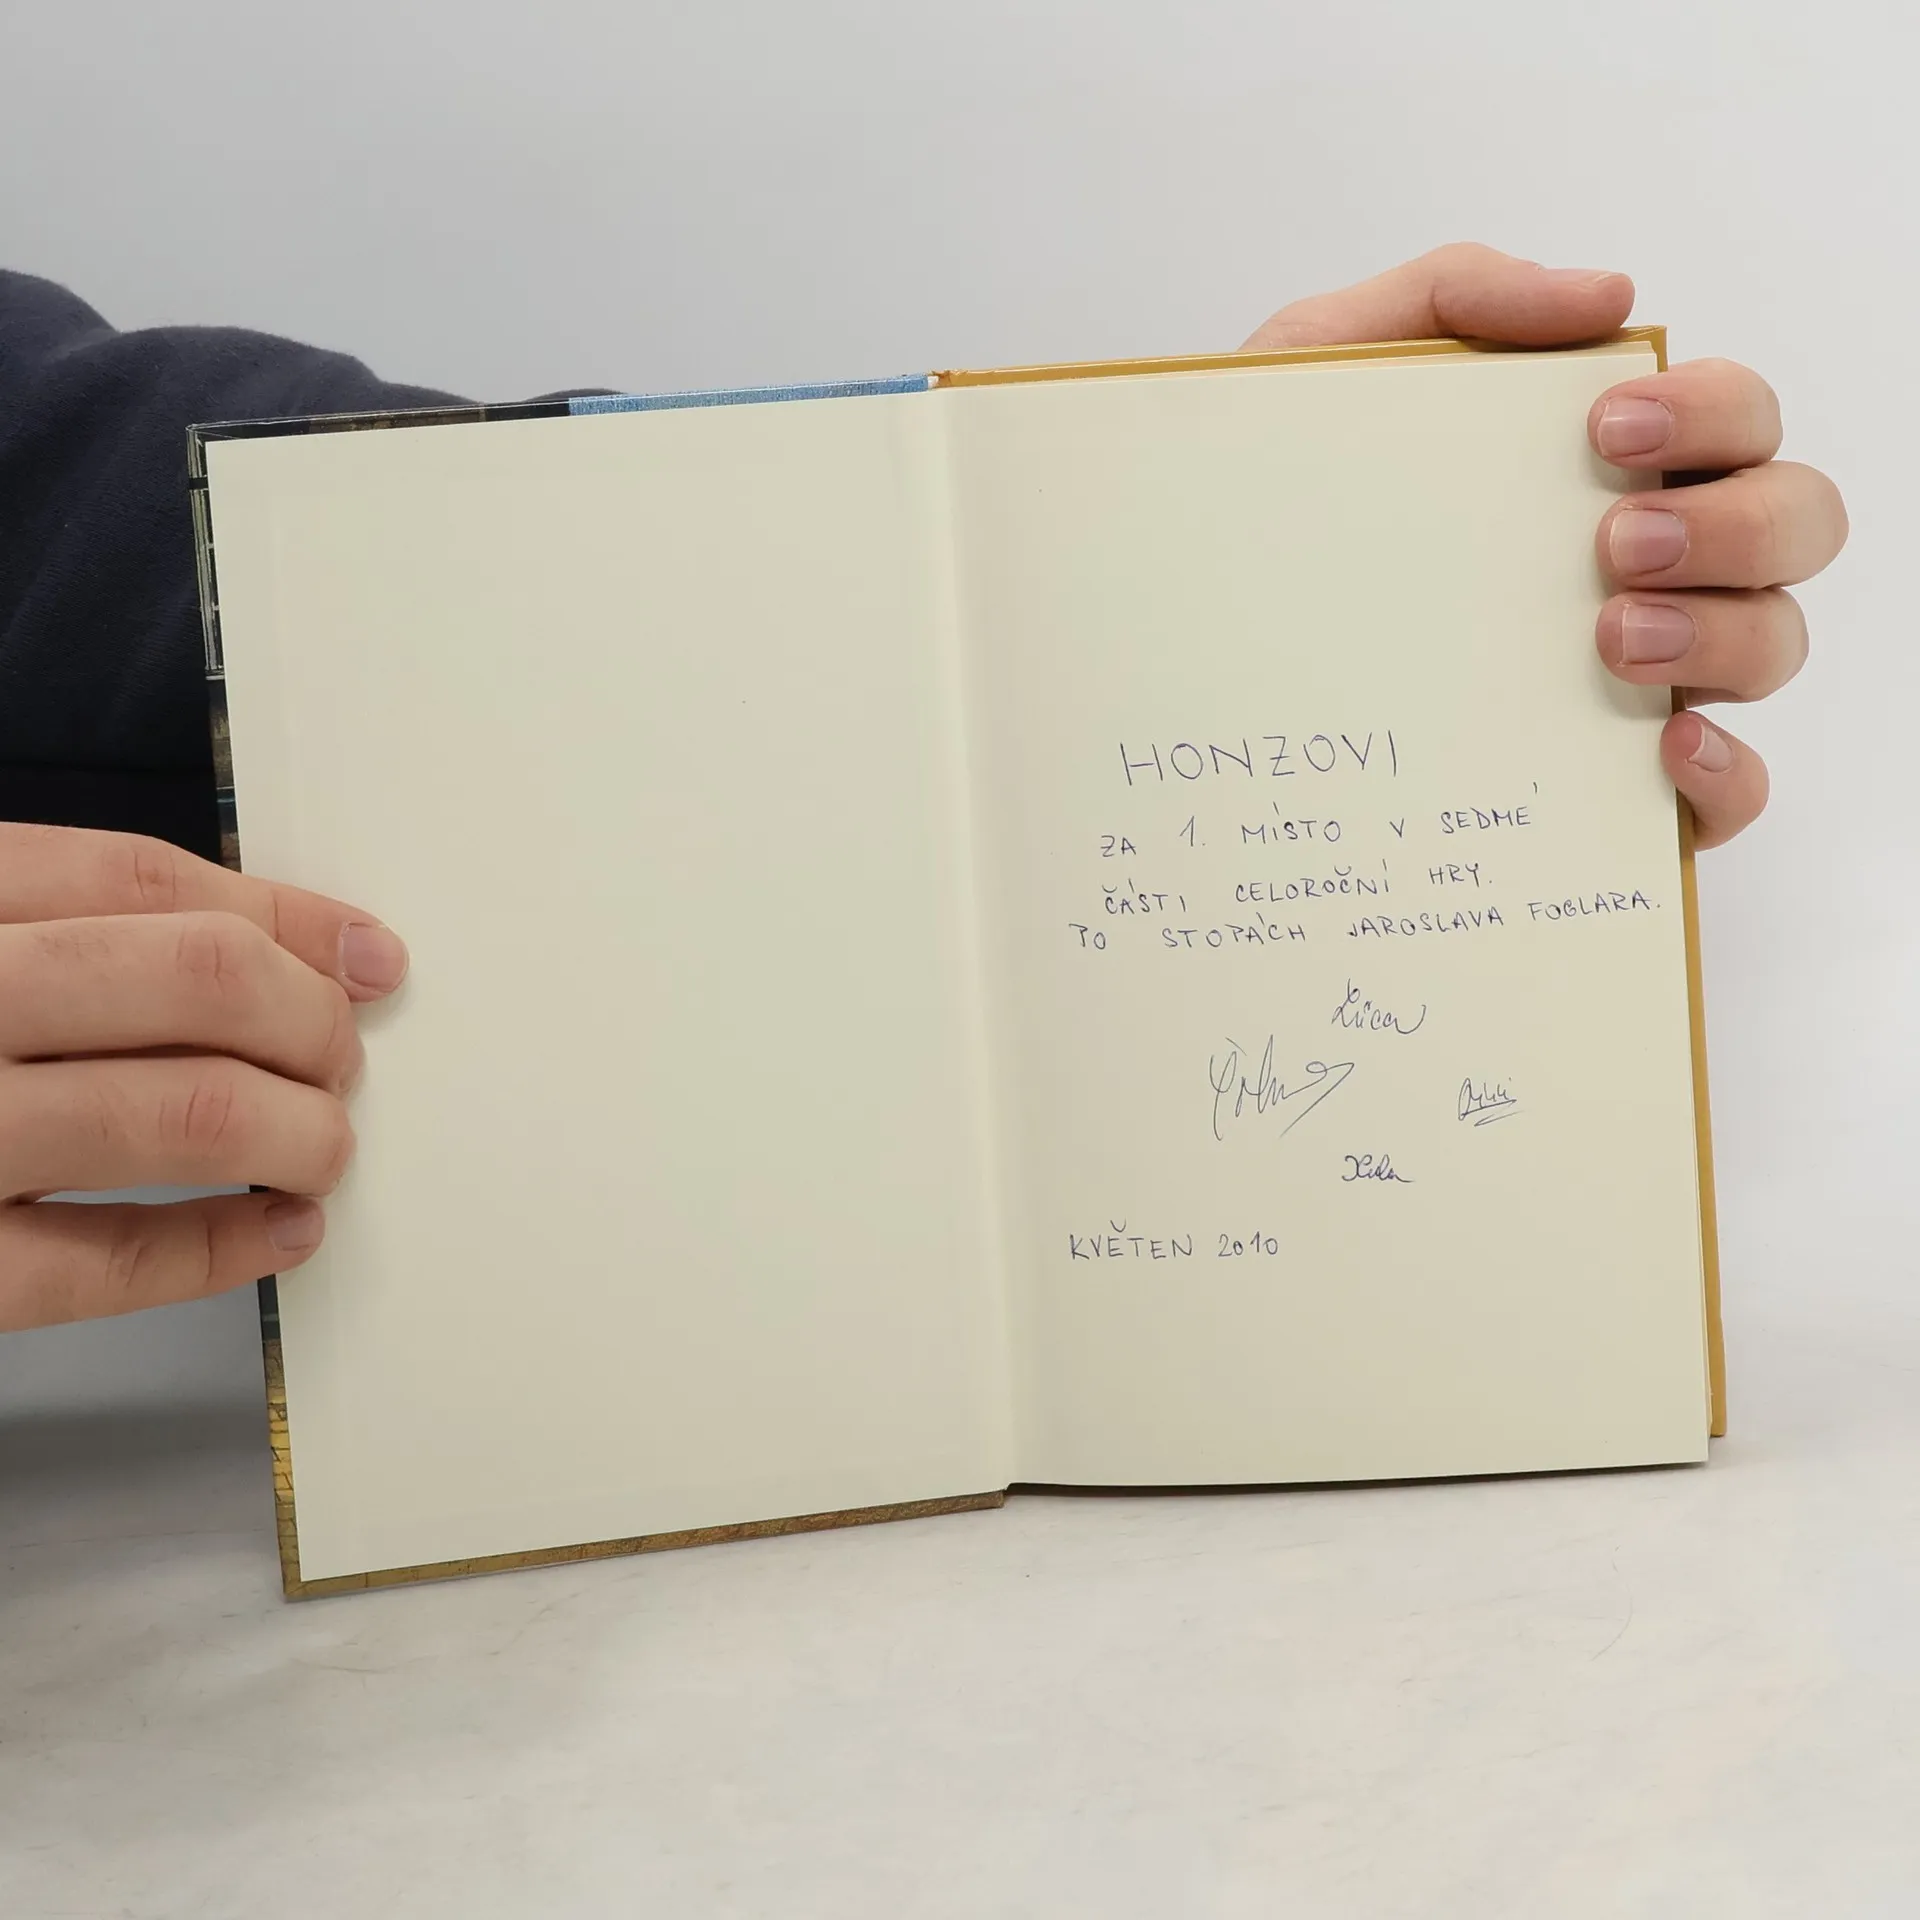 HONZOVI
ZA 1. MÍSTO V SEDMÉ
ČÁSTI CELOROČNÍ HRY.
PO STOPÁCH JAROSLAVA FOGLARA.
KVĚTEN 2010